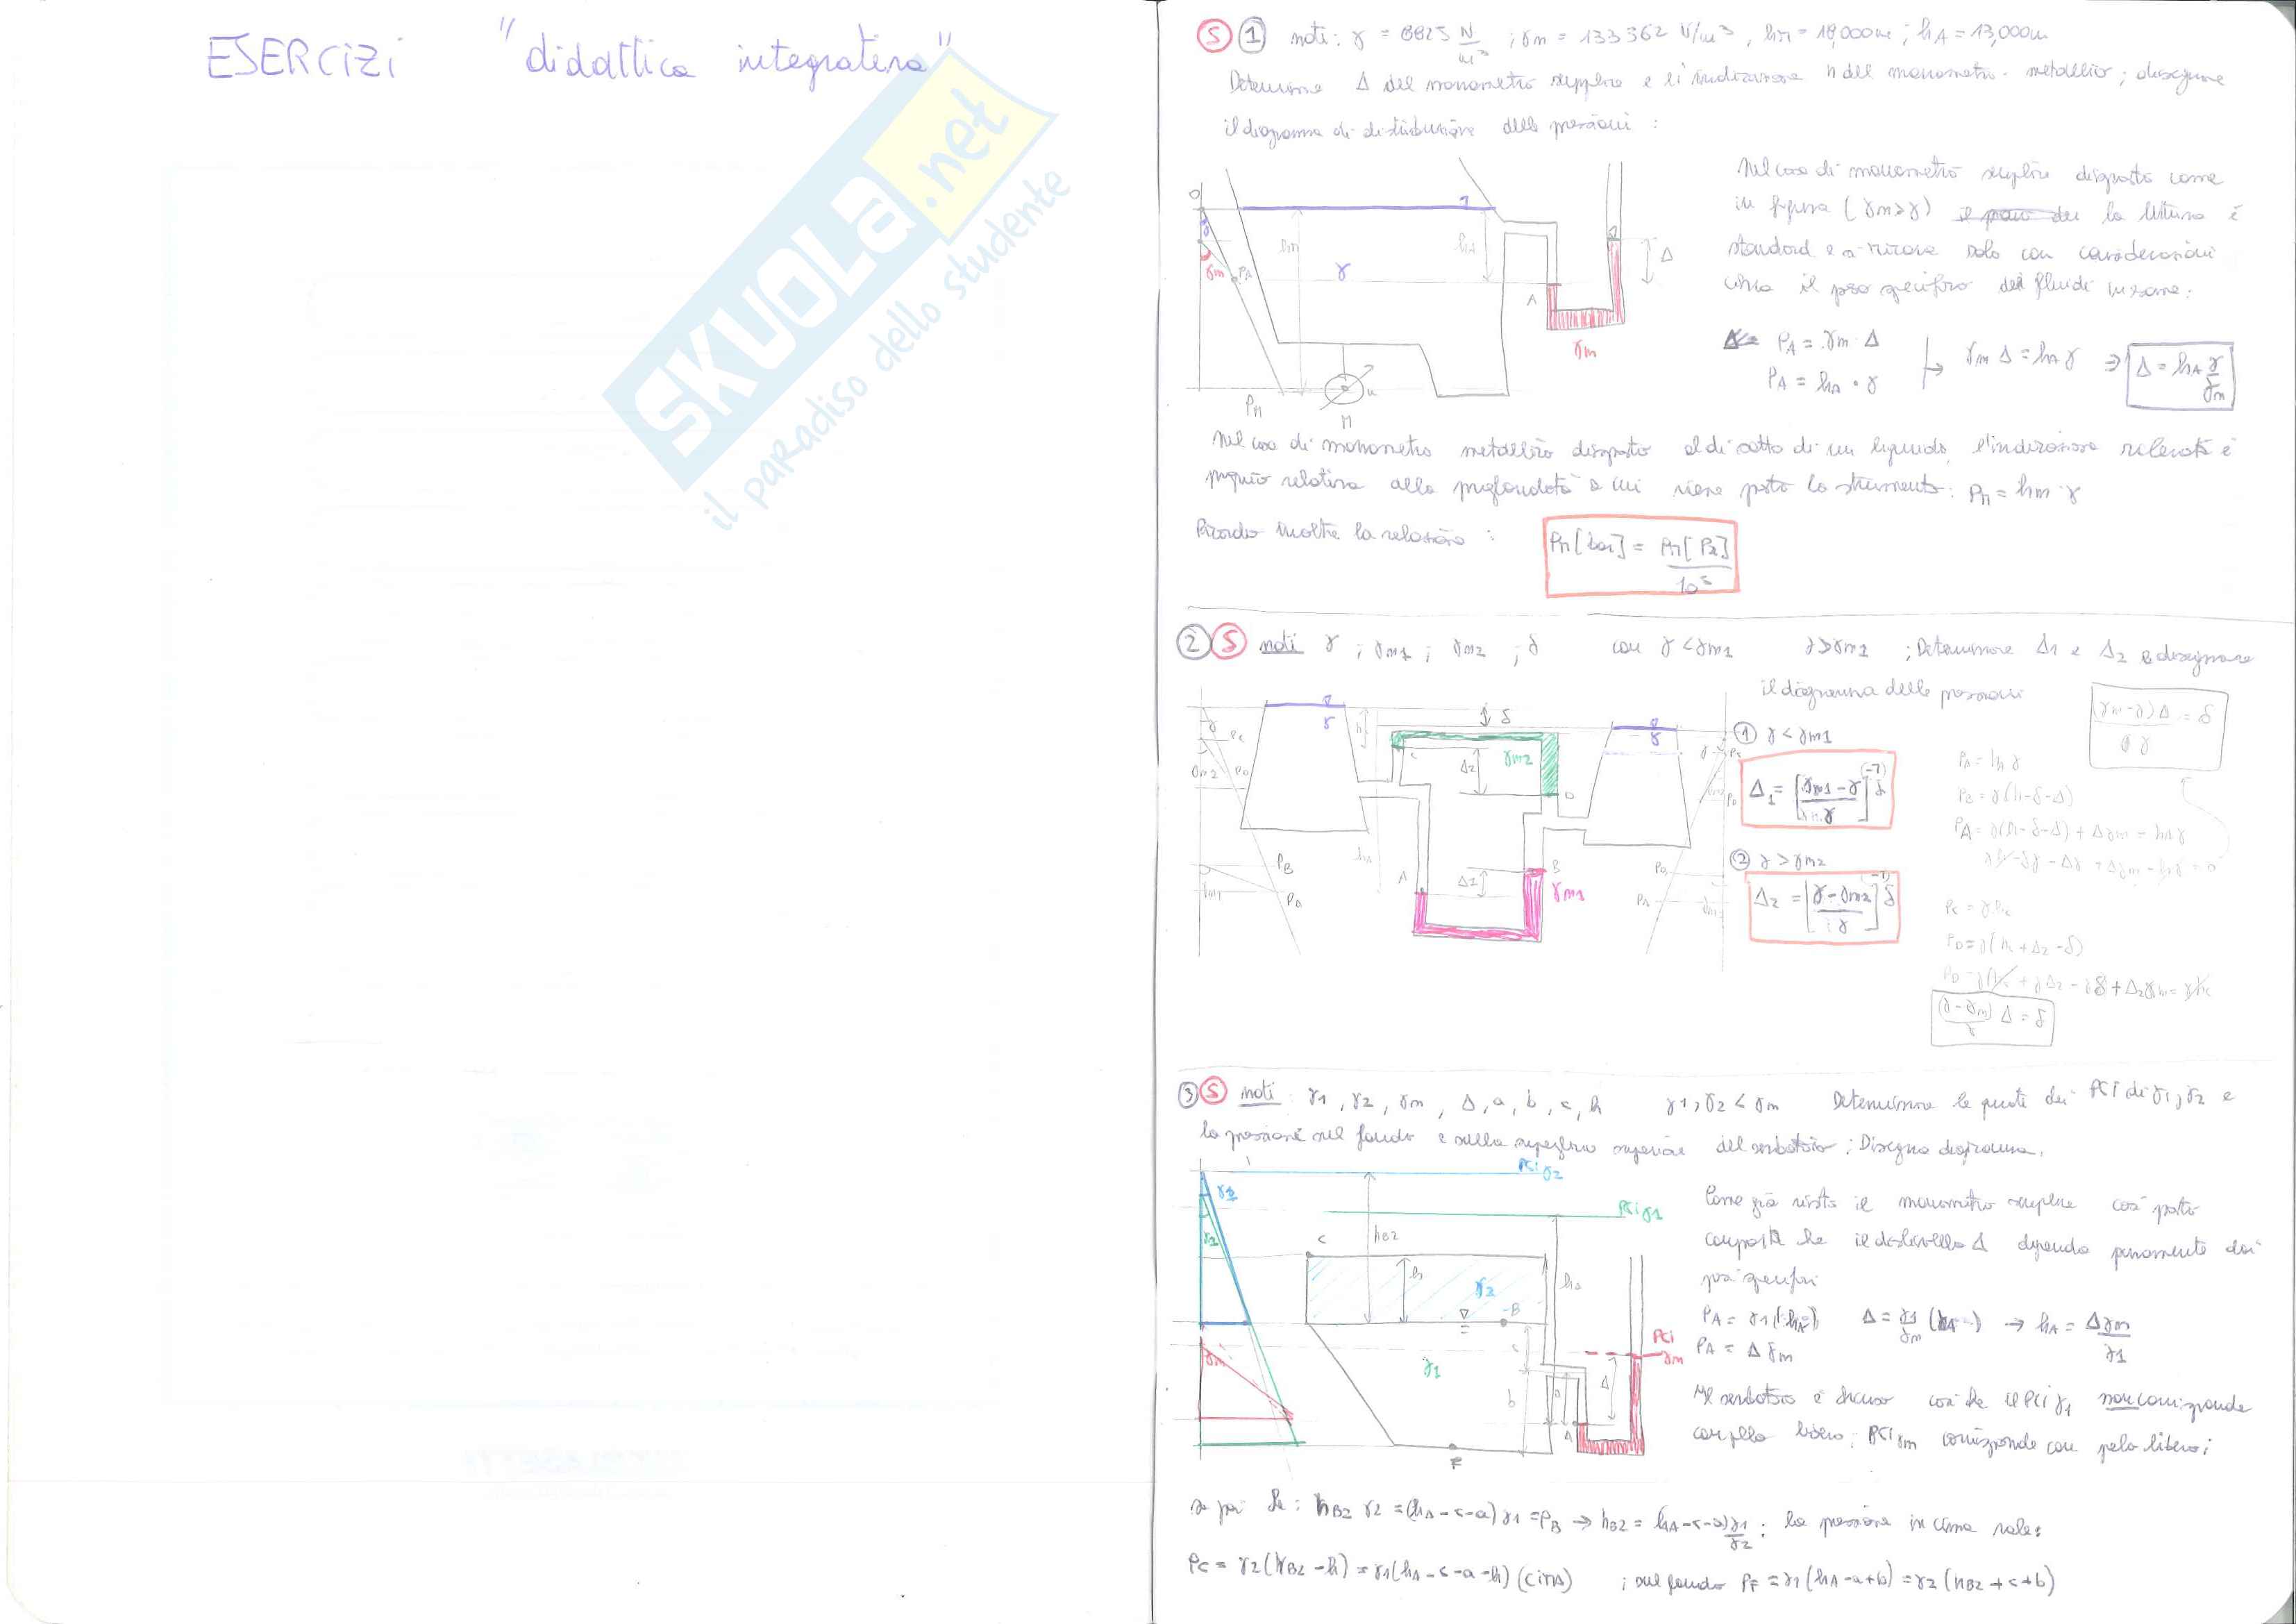 ESERCIZI "didattica integrativa"
SKUOLA.net
il paradiso dello studente
S 1 noti: γ = 8825 N/m³ ; γm = 133362 N/m³ , hM = 18,000m ; hA = 13,000m
Determinare Δ del manometro semplice e l'indicazione n del manometro metallico ; disegnare
il diagramma di distribuzione delle pressioni :
Nel caso di manometro semplice disposto come
in figura (γm>γ) la lettura è
standard e si ricava solo con considerazioni
circa il peso specifico dei fluidi in esame:
PA = γm · Δ
PA = hA · γ
γm Δ = hA γ ⇒ Δ = hA γ/γm
O
γ
γm
PA
hM
γ
hA
A
Δ
γm
PM
n
M
Nel caso di manometro metallico disposto al di sotto di un liquido, l'indicazione rilevata è
proprio relativa alla profondità a cui viene posto lo strumento: PM = hM γ
Ricordo inoltre la relazione : PM[bar] = PM[Pa]/10⁵
2 S noti γ ; γm1 ; γm2 ; δ con γ<γm1 γ>γm2 ; Determinare Δ1 e Δ2 e disegnare
il diagramma delle pressioni
(γm-γ)Δ/γ = δ
1 γ < γm1
Δ1 = [(γm1-γ)/γ]^(-1) δ
2 γ > γm2
Δ2 = [(γ-γm2)/γ]^(-1) δ
PA = hA γ
PB = γ(h-δ-Δ)
PA = γ(h-δ-Δ) + Δγm = hA γ
PC = γ hc
PD = γ(hc+Δ2-δ)
(γ-γm)/γ Δ = δ
γ
δ
γm2
Δ2
C
D
hA
A
Δ1
B
γm1
PC
PD
PB
PA
3 S noti : γ1 , γ2 , γm , Δ, a, b, c, h γ1,γ2 < γm Determinare le quote dei PCI di γ1, γ2 e
la pressione sul fondo e sulla superficie superiore del serbatoio ; Disegna diagramma.
PCI γ2
PCI γ1
Come già visto il manometro semplice così posto
comporta che il dislivello Δ dipenda puramente dai
pesi specifici
PA = γ1(hA) Δ = γ1/γm (hA) → hA = Δ γm/γ1
PA = Δ γm
Il serbatoio è chiuso così che il PCI γ1 non corrisponde
con pelo libero; PCI γm corrisponde con pelo libero;
γ2
γ1
hB2
C
h
γ2
B
hA
c
γ1
b
a
Δ
A
PCI γm
γm
F
si poi ha : hB2 γ2 = (hA-c-a)γ1 = PB → hB2 = (hA-c-a)γ1/γ2 ; la pressione in cima vale:
PC = γ2(hB2-h) = γ1(hA-c-a-h) (cima) ; sul fondo PF = γ1(hA-a+b) = γ2(hB2+c+b)